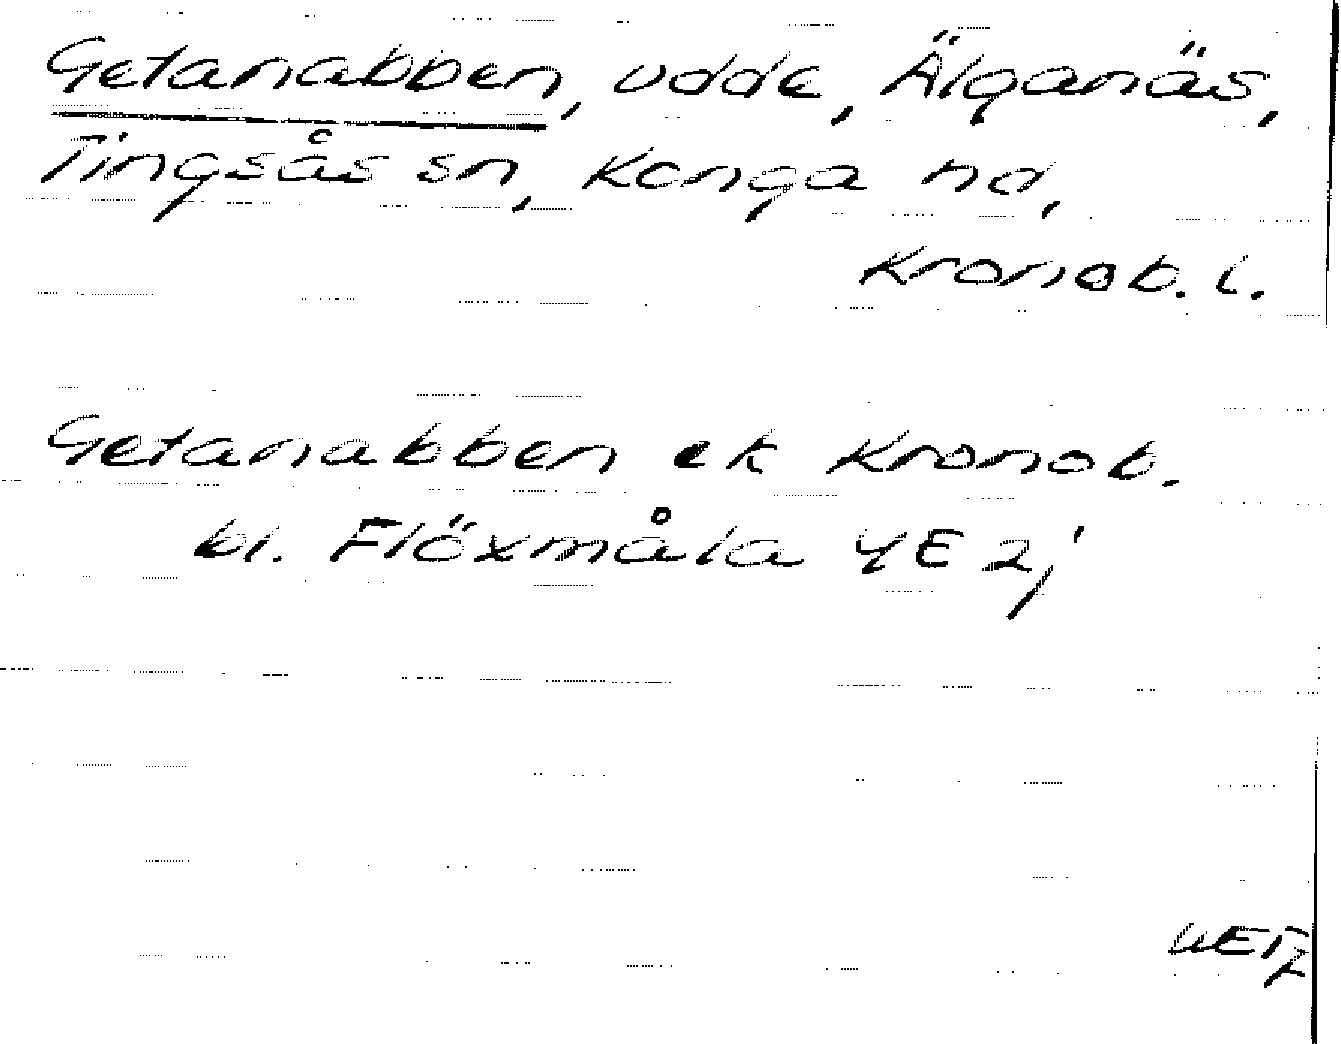 Getanabben, udde, Älganäs,
Tingsås sn, Konga hd,
Kronob. l.
Getanabben ek Kronob.
bl. Flöxmåla 4E2j'